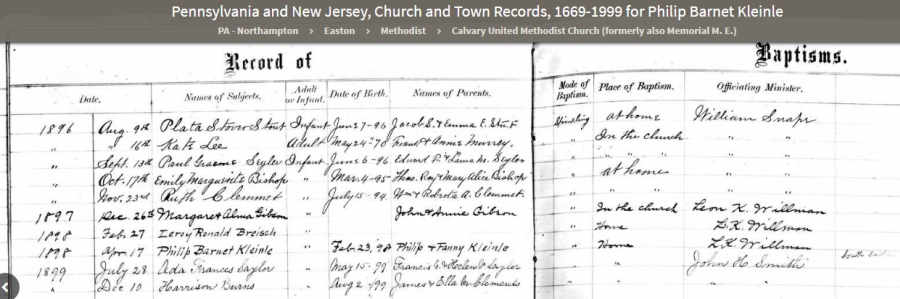 Pennsylvania and New Jersey, Church and Town Records, 1669-1999 for Philip Barnet Kleinle
PA - Northampton > Easton > Methodist > Calvary United Methodist Church (formerly also Memorial M. E.)
Record of Baptisms.
Date. Names of Subjects. Adult or Infant. Date of Birth. Names of Parents. Mode of Baptism. Place of Baptism. Officiating Minister.
1896 Aug. 9th Plata Stover Stout Infant June 7-96 Jacob S. & Emma E. at home William Snape
" " 16th Kate Lee Adult May 24-70 Frank & Annie Murrey. In the church " "
" Sept. 13th Paul Graeme Seyler Infant June 6-96 Edward F. & Laura M. Seyler " " "
" Oct. 17th Emily Marguerite Bishop " Mar. 4-95 Thos. Ray & Mary Alice Bishop at home " "
" Nov. 23rd Ruth Clemmet " July 15-94 Wm & Robrta A. Clemmet. " " "
1897 Dec. 26th Margaret Alma Gibson " John & Annie Gibson In the church Leon K. Willman
1898 Feb. 27 Leroy Ronald Breisch " Home L.K. Willman
1898 Apr. 17 Philip Barnet Kleinle " Feb. 23, 98 Philip & Fanny Kleinle Home L.K. Willman
1899 July 28 Ada Frances Saylor " May 15-99 Francis & Saylor " John H Smith South
" Dec 10 Harrison Burns " Aug 2-99 James & Ella M. Clements " "